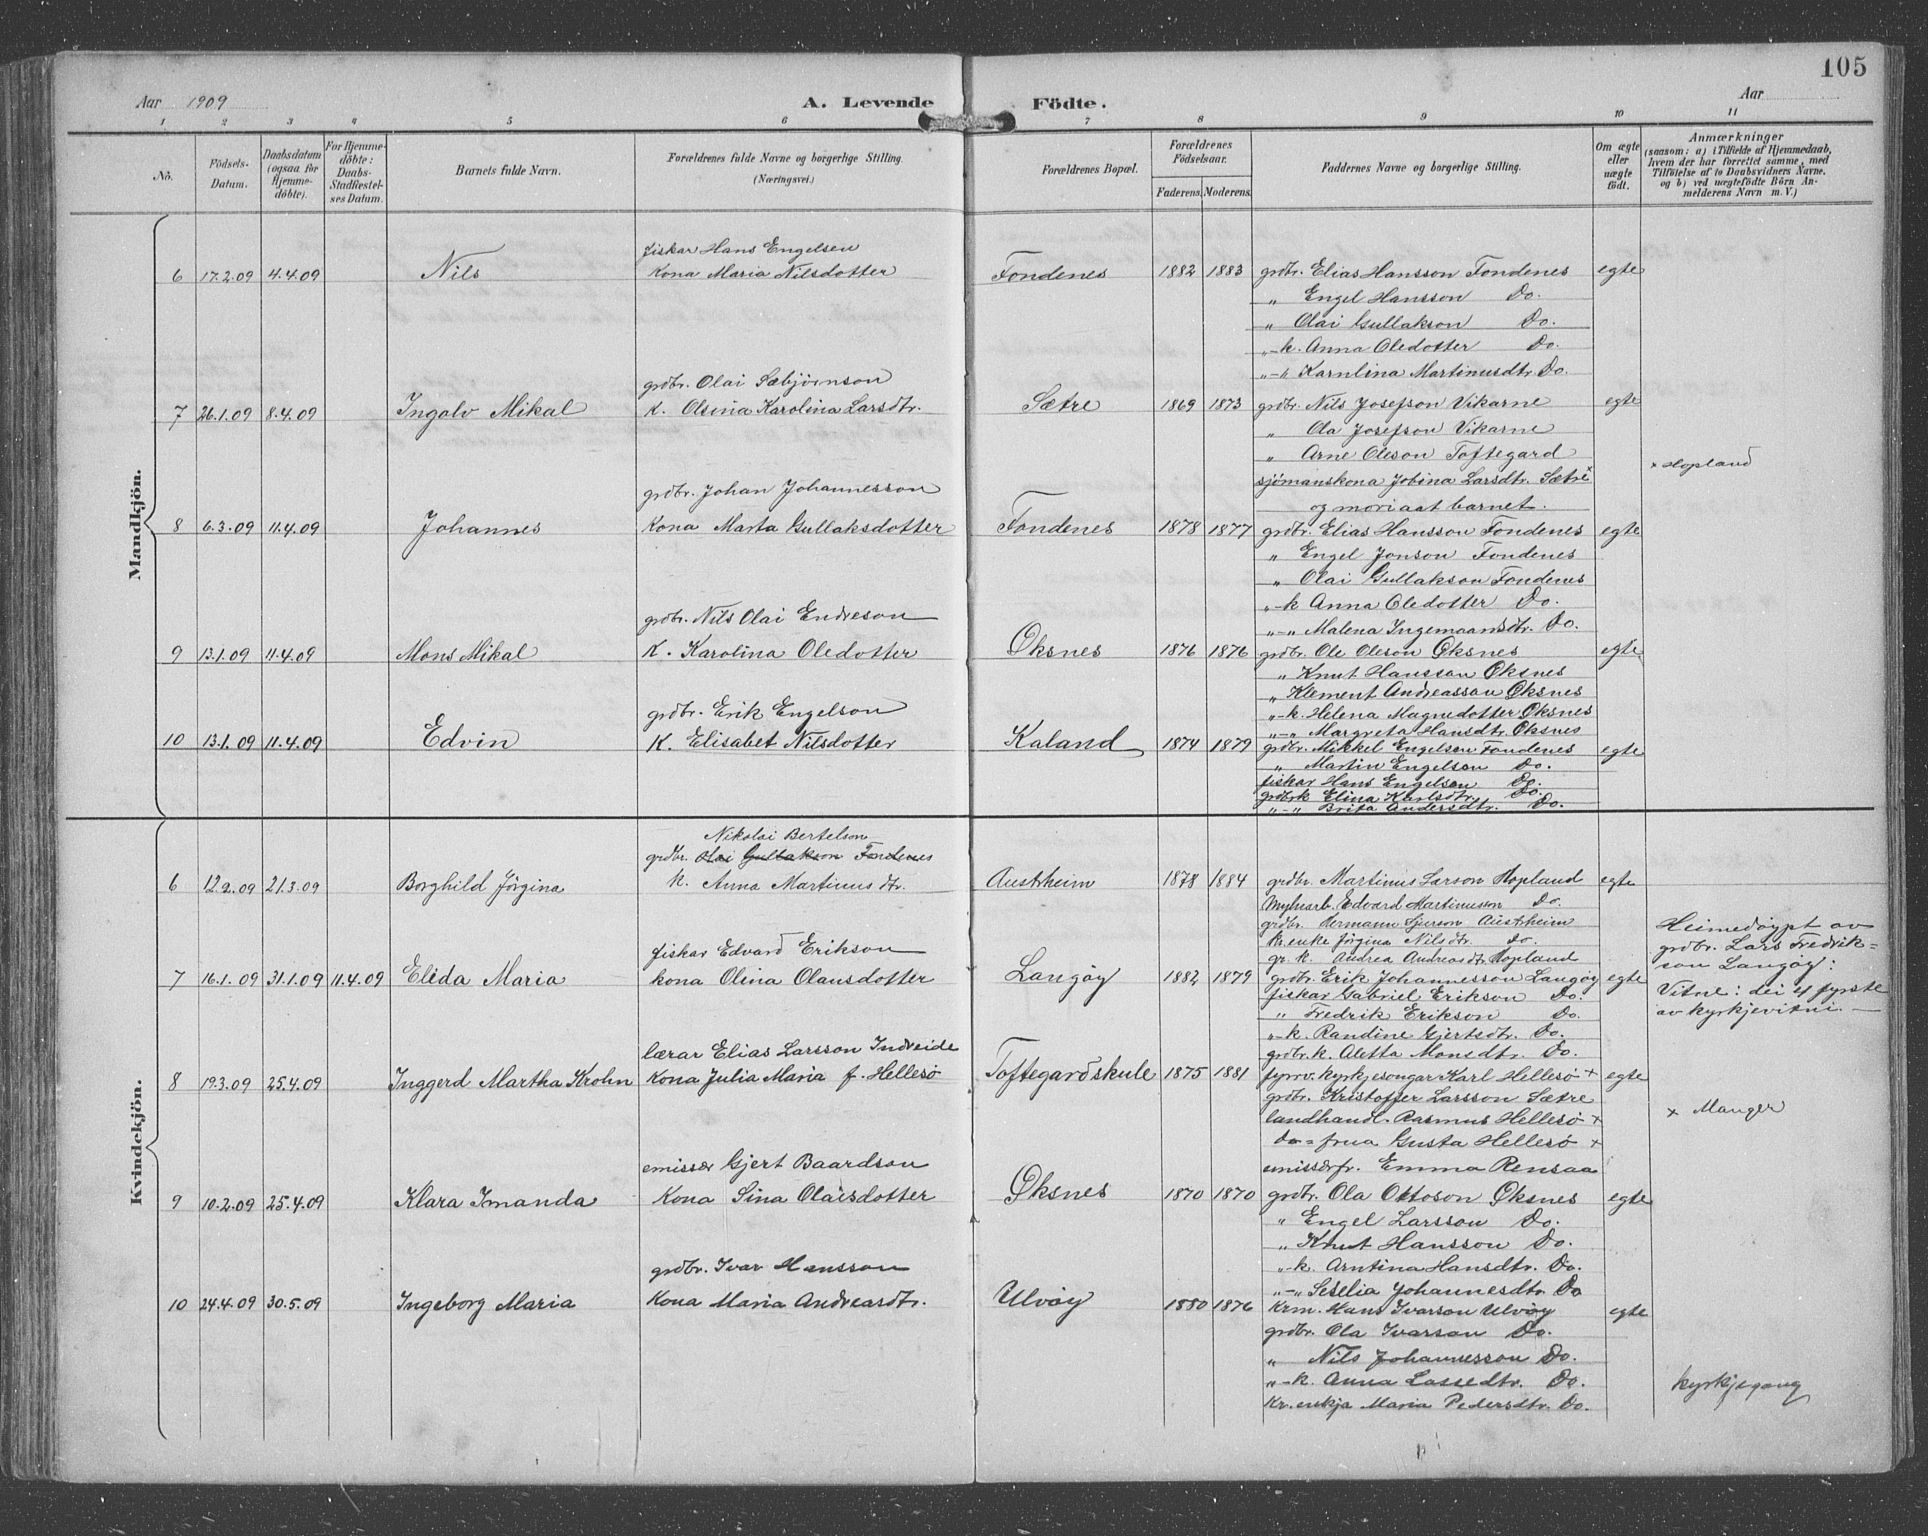 105
Aar 1909
A. Levende Födte.
Aar
1 2 3 4 5 6 7 8 9 10 11
No.
Födsels-Datum.
Daabsdatum (ogsaa for Hjemmedöbte).
For Hjemmedöbte: Daabs-Stadfæstelses Datum.
Barnets fulde Navn.
Forældrenes fulde Navne og borgerlige Stilling.
(Næringsvei.)
Forældrenes Bopæl.
Forældrenes Födselsaar.
Faderens. Moderens.
Faddernes Navne og borgerlige Stilling.
Om ægte eller uægte födt.
Anmærkninger
(saasom: a) i Tilfælde af Hjemmedaab, hvem der har forrettet samme, med Tilföielse af to Daabsvidners Navne, og b) ved uægtefödte Börn Anmelderens Navn m. V.)
Mandkjön.
fiskar Hans Engelsen
6 17.2.09 4.4.09 Nils Kona Maria Nilsdotter Fondenes 1882 1883 grdbr. Elias Hansson Fondenes egte
„ Engel Hansson Do.
„ Olai Gullakson Do.
„-k. Anna Oledotter Do.
„-„ Karnlina Martinusdtr. Do.
grdbr. Olai Sæbjørnson
7 26.1.09 8.4.09 Ingolv Mikal K. Olsina Karolina Larsdtr. Sætre 1869 1873 grdbr. Nils Josefson Vikarne egte
„ Ola Josefson Vikarne
„ Arne Oleson Toftegard
sjömanskona Jobina Larsdtr. Sætre × × Hopland
og mori aat barnet.
grdbr. Johan Johannesson
8 6.3.09 11.4.09 Johannes Kona Marta Gullaksdotter Fondenes 1878 1877 grdbr. Elias Hansson Fondenes egte
„ Engel Jonson Fondenes
„ Olai Gullakson Fondenes
„-k Anna Oledotter Do.
„-„ Malena Ingemaansdtr. Do.
grdbr. Nils Olai Endreson
9 13.1.09 11.4.09 Mons Mikal K. Karolina Oledotter Øksnes 1876 1876 grdbr. Ole Oleson Øksnes egte
„ Knut Hansson Øksnes
„ Klement Andreasson Øksnes
„-k. Helena Magnedotter Øksnes
„-„ Margreta Hansdtr. Øksnes
grdbr. Erik Engelson
10 13.1.09 11.4.09 Edvin K. Elisabet Nilsdotter Kaland 1874 1879 grdbr. Mikkel Engelsen Fondenes egte
„ Martin Engelson Do.
fiskar Hans Engelson Do.
grdbrk Elina Karlsdtr. Do.
„-„ Brita Andersdtr. Do.
Kvindekjön.
Nikolai Bertelson
grdbr. Olai Gullakson Fondenes
6 12.2.09 21.3.09 Borghild Jörgina K. Anna Martinusdtr. Austrheim 1878 1884 grdbr. Martinus Larson Hopland egte
Mylnarb. Edvard Martinusson Do.
grdbr. Hermann Sjurson Austrheim
Kr. enke Jörgina Nilsdtr. Do.
gr. k. Andrea Andreasdtr Hopland
fiskar Edvard Erikson
7 16.1.09 31.1.09 11.4.09 Elida Maria kona Olina Olausdotter Langöy 1882 1879 grdbr. Erik Johannesson Langöy egte
fiskar Gabriel Erikson Do.
„ Fredrik Erikson Do.
„-k. Randine Gjertsdtr. Do.
grdbr. k. Aletta Monsdtr. Do.
Heimedöypt av
grdbr. Lars Fredrik=
son Langöy:
Vitne: dei 4 fyrste
av kyrkjevitni.
lærar Elias Larsson Indreide
8 19.3.09 25.4.09 Inggerd Martha Krohn Kona Julia Maria f. Hellesö Toftegardskule 1875 1881 fyrrv. kyrkjesongar Karl Hellesö + egte
grdbr. Kristoffer Larsson Sætre
landhandl. Rasmus Hellesö + × Manger
do = frua Gusta Hellesö +
emissærfr. Emma Rensaa
emissær Gjert Baardson
9 10.2.09 25.4.09 Klara Imanda Kona Sina Olaisdotter Øksnes 1870 1870 grdbr. Ola Ottoson Øksnes egte
„ Engel Larsson Do.
„ Knut Hansson Do.
„-k. Arntina Hansdtr. Do.
„-„ Seselia Johannesdtr. Do
grdbr. Ivar Hansson
10 24.4.09 30.5.09 Ingeborg Maria Kona Maria Andreasdtr. Ulvöy 1880 1876 Krm. Hans Ivarson Ulvöy egte
grdbr. Ola Ivarson Do.
„ Nils Johannesson Do.
„-k. Anna Lassedtr. Do. kyrkjegang
Kr. enkja Maria Pedersdtr. Do.